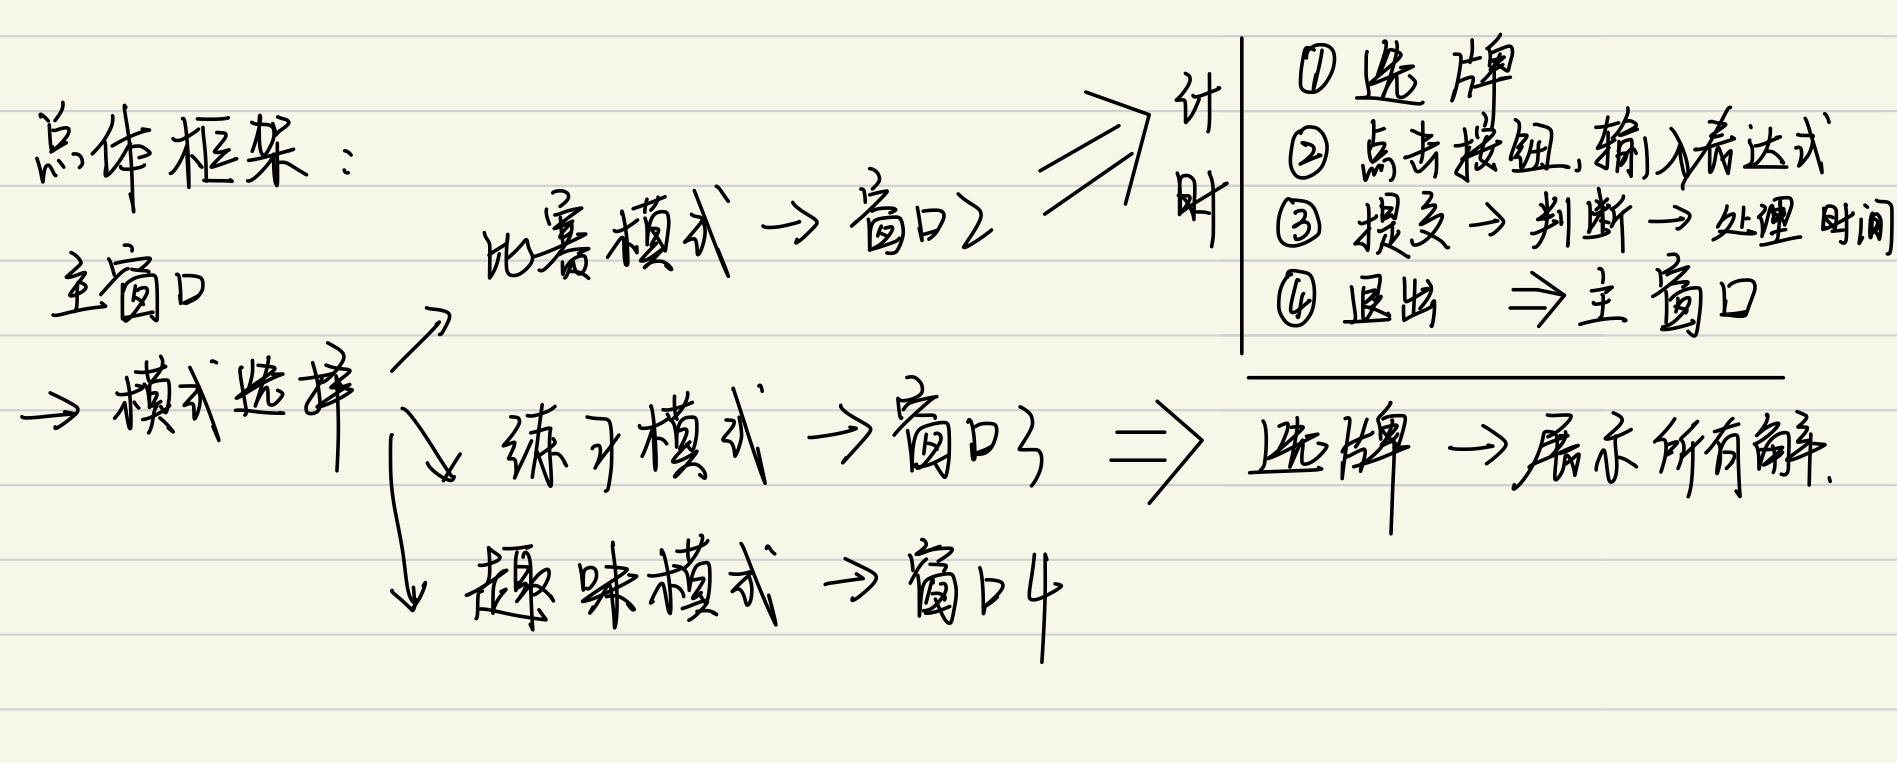 总体框架：
主窗口
→ 模式选择
比赛模式 → 窗口2 ⇒ 计时
① 选牌
② 点击按钮, 输入表达式
③ 提交 → 判断 → 处理时间
④ 退出 ⇒ 主窗口
练习模式 → 窗口3 ⇒ 选牌 → 展示所有解.
趣味模式 → 窗口4